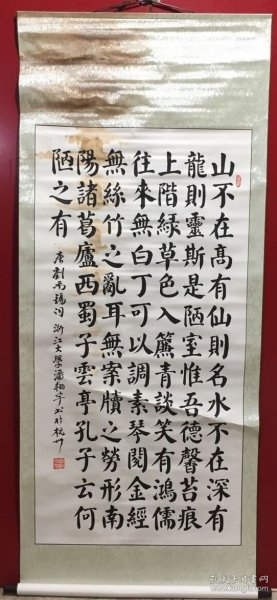 山不在高有仙則名水不在深有
龍則靈斯是陋室惟吾德馨苔痕
上階緑草色入簾青談笑有鴻儒
往來無白丁可以調素琴閱金經
無絲竹之亂耳無案牘之勞形南
陽諸葛廬西蜀子雲亭孔子云何
陋之有
唐劉禹錫詞 浙江大學潘翔宇書於杭州